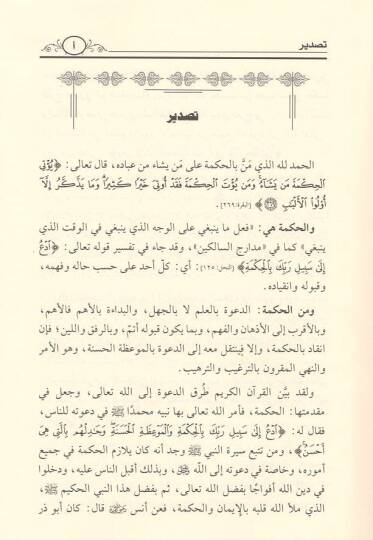 تصدير
١
تصدير
الحمد لله الذي مَنَّ بالحكمة على مَن يشاء من عباده، قال تعالى: ﴿يُؤْتِي
الْحِكْمَةَ مَن يَشَاءُ وَمَن يُؤْتَ الْحِكْمَةَ فَقَدْ أُوتِيَ خَيْرًا كَثِيرًا وَمَا يَذَّكَّرُ إِلَّا
أُولُوا الْأَلْبَابِ ﴿٢٦٩﴾﴾ [البقرة: ٢٦٩].
والحكمة هي: «فعل ما ينبغي على الوجه الذي ينبغي في الوقت الذي
ينبغي» كما في «مدارج السالكين»، وقد جاء في تفسير قوله تعالى: ﴿ادْعُ
إِلَى سَبِيلِ رَبِّكَ بِالْحِكْمَةِ﴾ [النحل: ١٢٥]: أي: كلّ أحد على حسب حاله وفهمه،
وقبوله وانقياده.
ومن الحكمة: الدعوة بالعلم لا بالجهل، والبداءة بالأهم فالأهم،
وبالأقرب إلى الأذهان والفهم، وبما يكون قبوله أتمّ، وبالرفق واللين؛ فإن
انقاد بالحكمة، وإلا فينتقل معه إلى الدعوة بالموعظة الحسنة، وهو الأمر
والنهي المقرون بالترغيب والترهيب.
ولقد بيَّن القرآن الكريم طُرق الدعوة إلى الله تعالى، وجعل في
مقدمتها: الحكمة، فأمر الله تعالى بها نبيه محمدًا ﷺ في دعوته للناس،
فقال له: ﴿ادْعُ إِلَى سَبِيلِ رَبِّكَ بِالْحِكْمَةِ وَالْمَوْعِظَةِ الْحَسَنَةِ وَجَادِلْهُم بِالَّتِي هِيَ
أَحْسَنُ﴾، ومن تتبع سيرة النبي ﷺ وجد أنه كان يلازم الحكمة في جميع
أموره، وخاصة في دعوته إلى الله ﷻ، وبذلك أقبل الناس عليه، ودخلوا
في دين الله أفواجًا بفضل الله تعالى، ثم بفضل هذا النبي الحكيم ﷺ،
الذي ملأ الله قلبه بالإيمان والحكمة، فعن أنس رضي الله عنه قال: كان أبو ذر